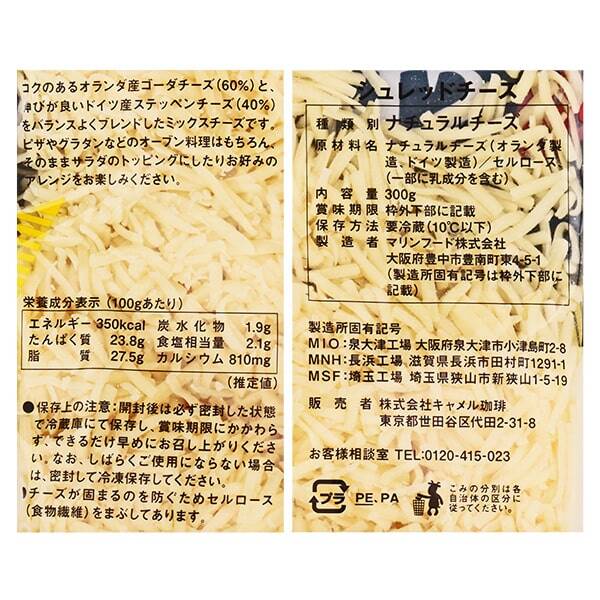 コクのあるオランダ産ゴーダチーズ(60%)と、
伸びが良いドイツ産ステッペンチーズ(40%)
をバランスよくブレンドしたミックスチーズです。
ピザやグラタンなどのオーブン料理はもちろん、
そのままサラダのトッピングにしたりお好みの
アレンジをお楽しみください。
栄養成分表示(100gあたり)
エネルギー 350kcal 炭水化物 1.9g
たんぱく質 23.8g 食塩相当量 2.1g
脂質 27.5g カルシウム 810mg
(推定値)
●保存上の注意:開封後は必ず密封した状態
で冷蔵庫にて保存し、賞味期限にかかわら
ず、できるだけ早めにお召し上がりくださ
い。なお、しばらくご使用にならない場合
は、密封して冷凍保存してください。
●チーズが固まるのを防ぐためセルロース
(食物繊維)をまぶしてあります。
シュレッドチーズ
種類別 ナチュラルチーズ
原材料名 ナチュラルチーズ(オランダ製
造、ドイツ製造)/セルロース、
(一部に乳成分を含む)
内容量 300g
賞味期限 枠外下部に記載
保存方法 要冷蔵(10℃以下)
製造者 マリンフード株式会社
大阪府豊中市豊南町東4-5-1
(製造所固有記号は枠外下部に
記載)
製造所固有記号
MIO:泉大津工場 大阪府泉大津市小津島町2-8
MNH:長浜工場 滋賀県長浜市田村町1291-1
MSF:埼玉工場 埼玉県狭山市新狭山1-5-19
販売者 株式会社キャメル珈琲
東京都世田谷区代田2-31-8
お客様相談室 TEL:0120-415-023
プラ PE、PA
ごみの分別は各
自治体の区分に
従ってください。